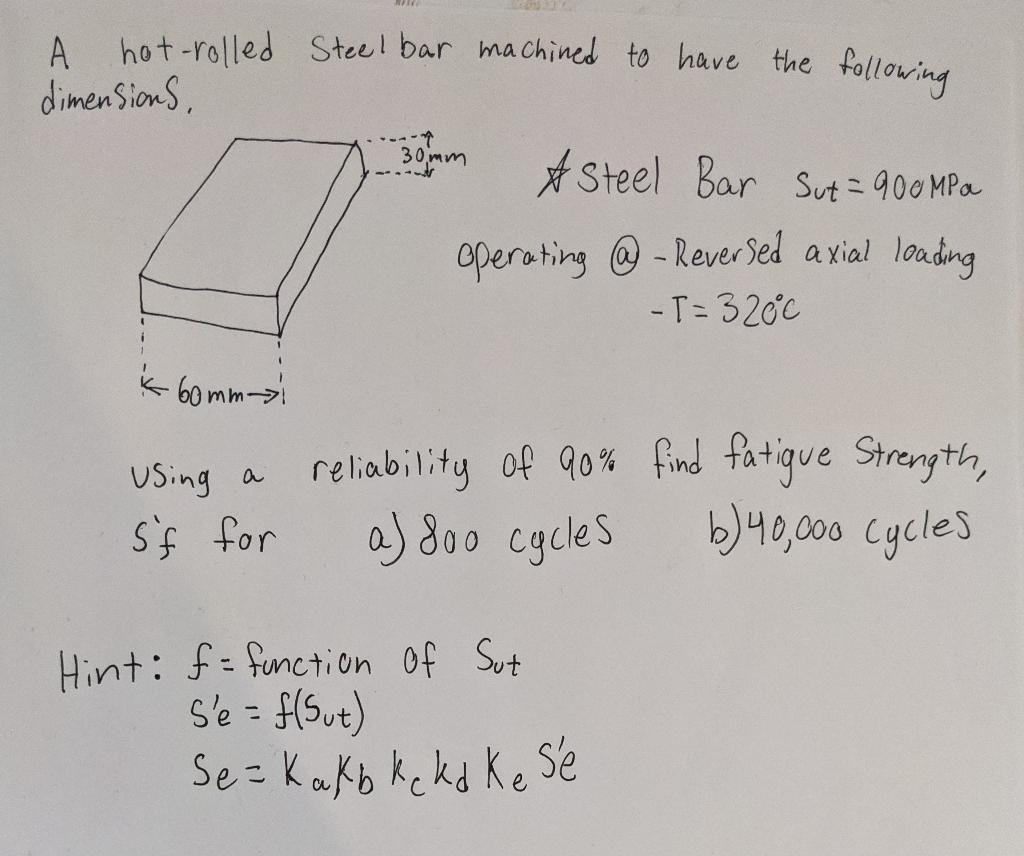 A hot-rolled Steel bar machined to have the following
dimensions,
30mm
Steel Bar Sut = 900MPa
operating @ - Reversed axial loading
- T = 320°C
60mm
Using a reliability of 90% find fatigue Strength,
S'f for a) 800 cycles b) 40,000 cycles
Hint: f = function of Sut
S'e = f(Sut)
Se = Ka Kb Kc Kd Ke S'e